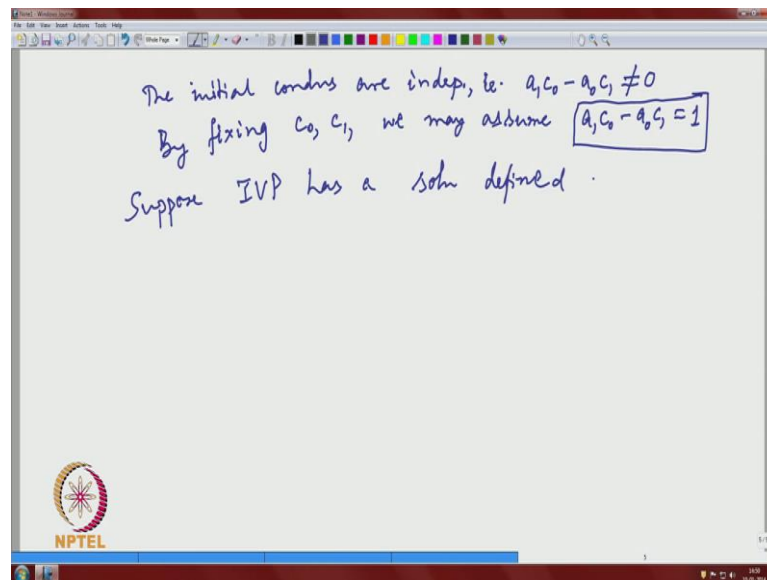 Note1 - Windows Journal
File Edit View Insert Actions Tools Help
Whole Page
The initial condns are indep., ie. a₁c₀ - a₀c₁ ≠ 0
By fixing c₀, c₁, we may assume a₁c₀ - a₀c₁ = 1
Suppose IVP has a soln defined .
NPTEL
5